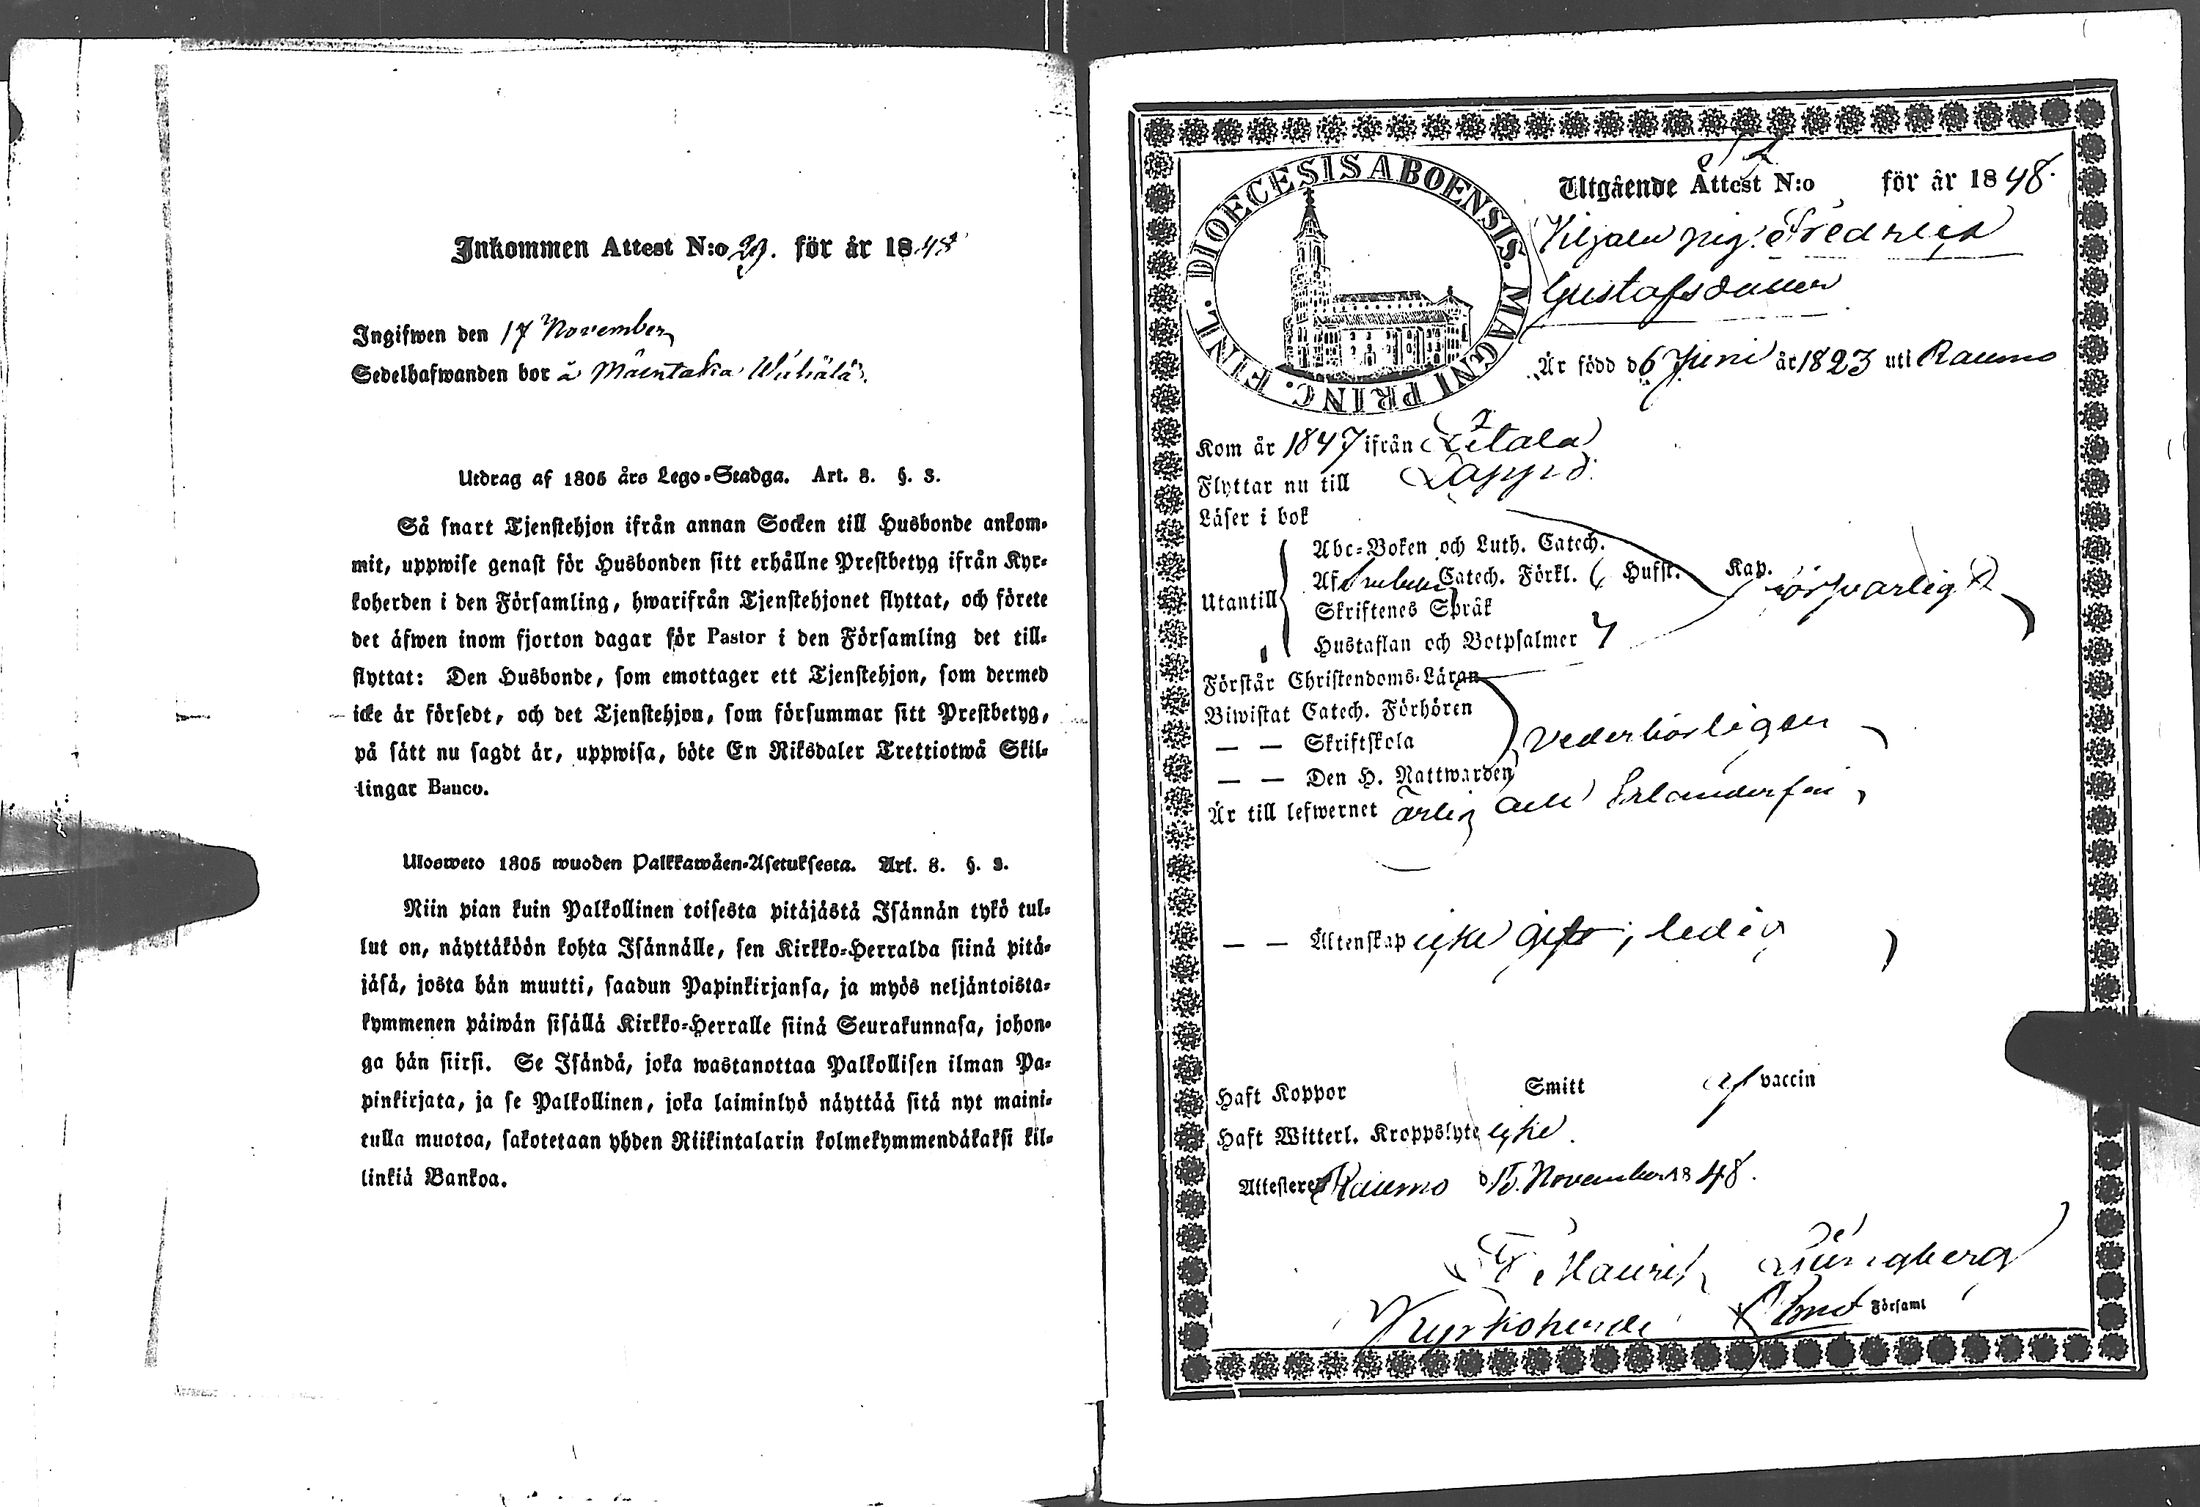 Inkommen Attest N:o 29. för år 1848
Ingifwen den 17 November
Sedelhafwanden bor å Mäentaka
Utdrag af 1805 års Lego-Stadga. Art. 8. §. 3.
Så snart Tjenstehjon ifrån annan Socken till Husbonde ankom-
mit, uppwise genast för Husbonden sitt erhållne Prestbetyg ifrån Kyr-
koherden i den Församling, hwarifrån Tjenstehjonet flyttat, och förete
det äfwen inom fjorton dagar för Pastor i den Församling det till-
flyttat: Den Husbonde, som emottager ett Tjenstehjon, som dermed
icke är försedt, och det Tjenstehjon, som försummar sitt Prestbetyg,
på sätt nu sagdt är, uppwisa, böte En Riksdaler Trettiotwå Skil-
lingar Banco.
Ulosweto 1805 wuoden Palkkawäen-Asetuksesta. Art. 8. §. 3.
Niin pian kuin Palkollinen toisesta pitäjästä Isännän tykö tul-
lut on, näyttäköön kohta Isännälle, sen Kirkko-Herralda siinä pitä-
jäsä, josta hän muutti, saadun Papinkirjansa, ja myös neljäntoista-
kymmenen päiwän sisällä Kirkko-Herralle siinä Seurakunnasa, johon-
ga hän siirsi. Se Isändä, joka wastanottaa Palkollisen ilman Pa-
pinkirjata, ja se Palkollinen, joka laiminlyö näyttää sitä nyt maini-
tulla muotoa, sakotetaan yhden Riikintalarin kolmekymmendäkaksi kil-
linkiä Bankoa.
DIOECESIS ABOENSIS. MAGNI PRINC. FINL.
Utgående Attest N:o för år 1848.
pig. Fredrica
Gustafsdotter
Är född d 6 Juni år 1823 uti Raumo
Kom år 1847 ifrån Letala
Flyttar nu till Lappo.
Läser i bok
Abc-Boken och Luth. Catech.
Utantill Af Catech. Förkl. Hufst. Kap. försvarligt
Skriftenes Språk
Hustaflan och Botpsalmer 7
Förstår Christendoms-Läran
Biwistat Catech. Förhören
— — Skriftskola vederbörligen
— — Den H. Nattwarden
Är till lefwernet ärlig och
— — Äktenskap icke gift, ledig
Haft Koppor Smitt af vaccin
Haft Witterl. Kroppslyte icke.
Attesterer Raumo d 15. November 1848.
Ljungberg
Kyrkoherde Församl